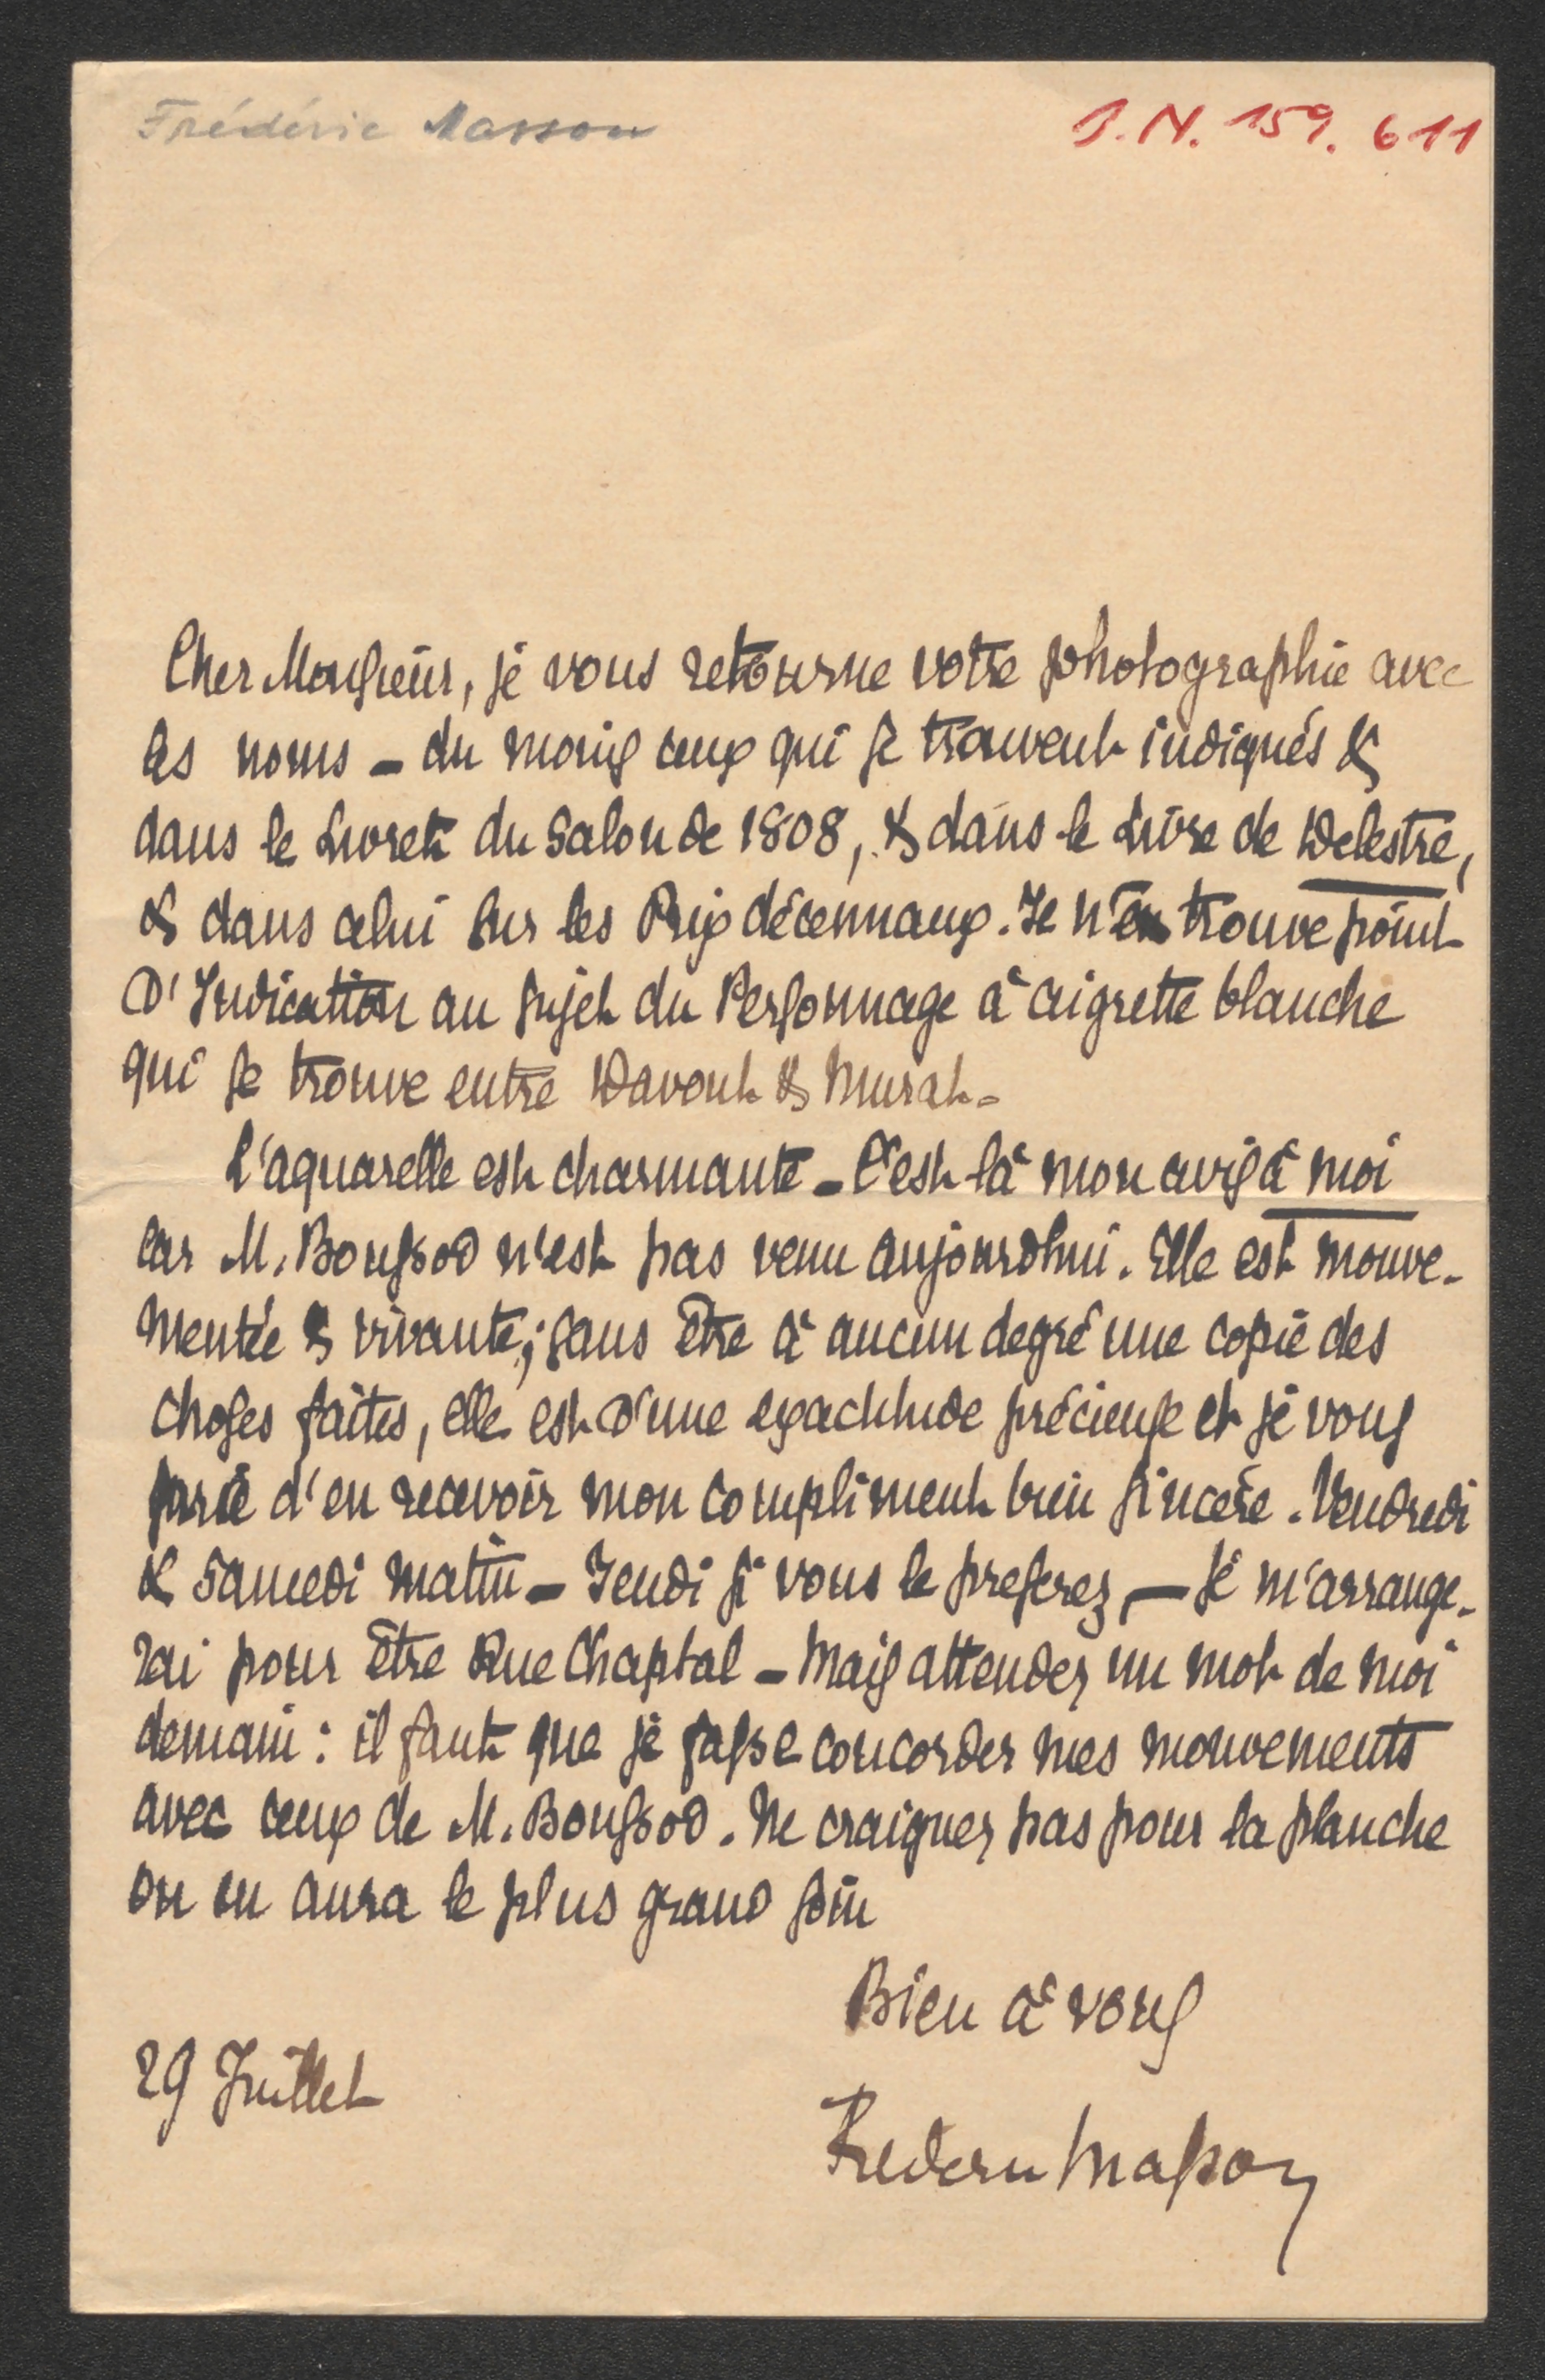 Frédéric Masson
I.N. 159.611
Cher Monsieur, je vous retourne votre photographie avec
les noms – du moins ceux qui se trouvent indiqués &
dans le Livret du Salon de 1808, & dans le Livre de Delestre,
& dans celui sur les Prix décennaux. Je n'en trouve point
D'Indication au sujet du Personnage à aigrette blanche
qui se trouve entre Davout & Murat –
L'aquarelle est charmante – C'est là mon avis à moi
car M. Boussod n'est pas venu aujourdhui. Elle est mouve-
mentée & vivante; sans être à aucun degré une copie des
choses faites, elle est d'une exactitude précieuse et je vous
prie d'en recevoir mon compliment bien sincère. Vendredi
& Samedi matin – Jeudi si vous le preferez, – je m'arrange-
rai pour être Rue Chaptal – Mais attendez un mot de moi
demain : il faut que je fasse concorder mes mouvements
avec ceux de M. Boussod. Ne craignez pas pour la planche
on en aura le plus grand soin
Bien à vous
29 Juillet
Frederic Masson